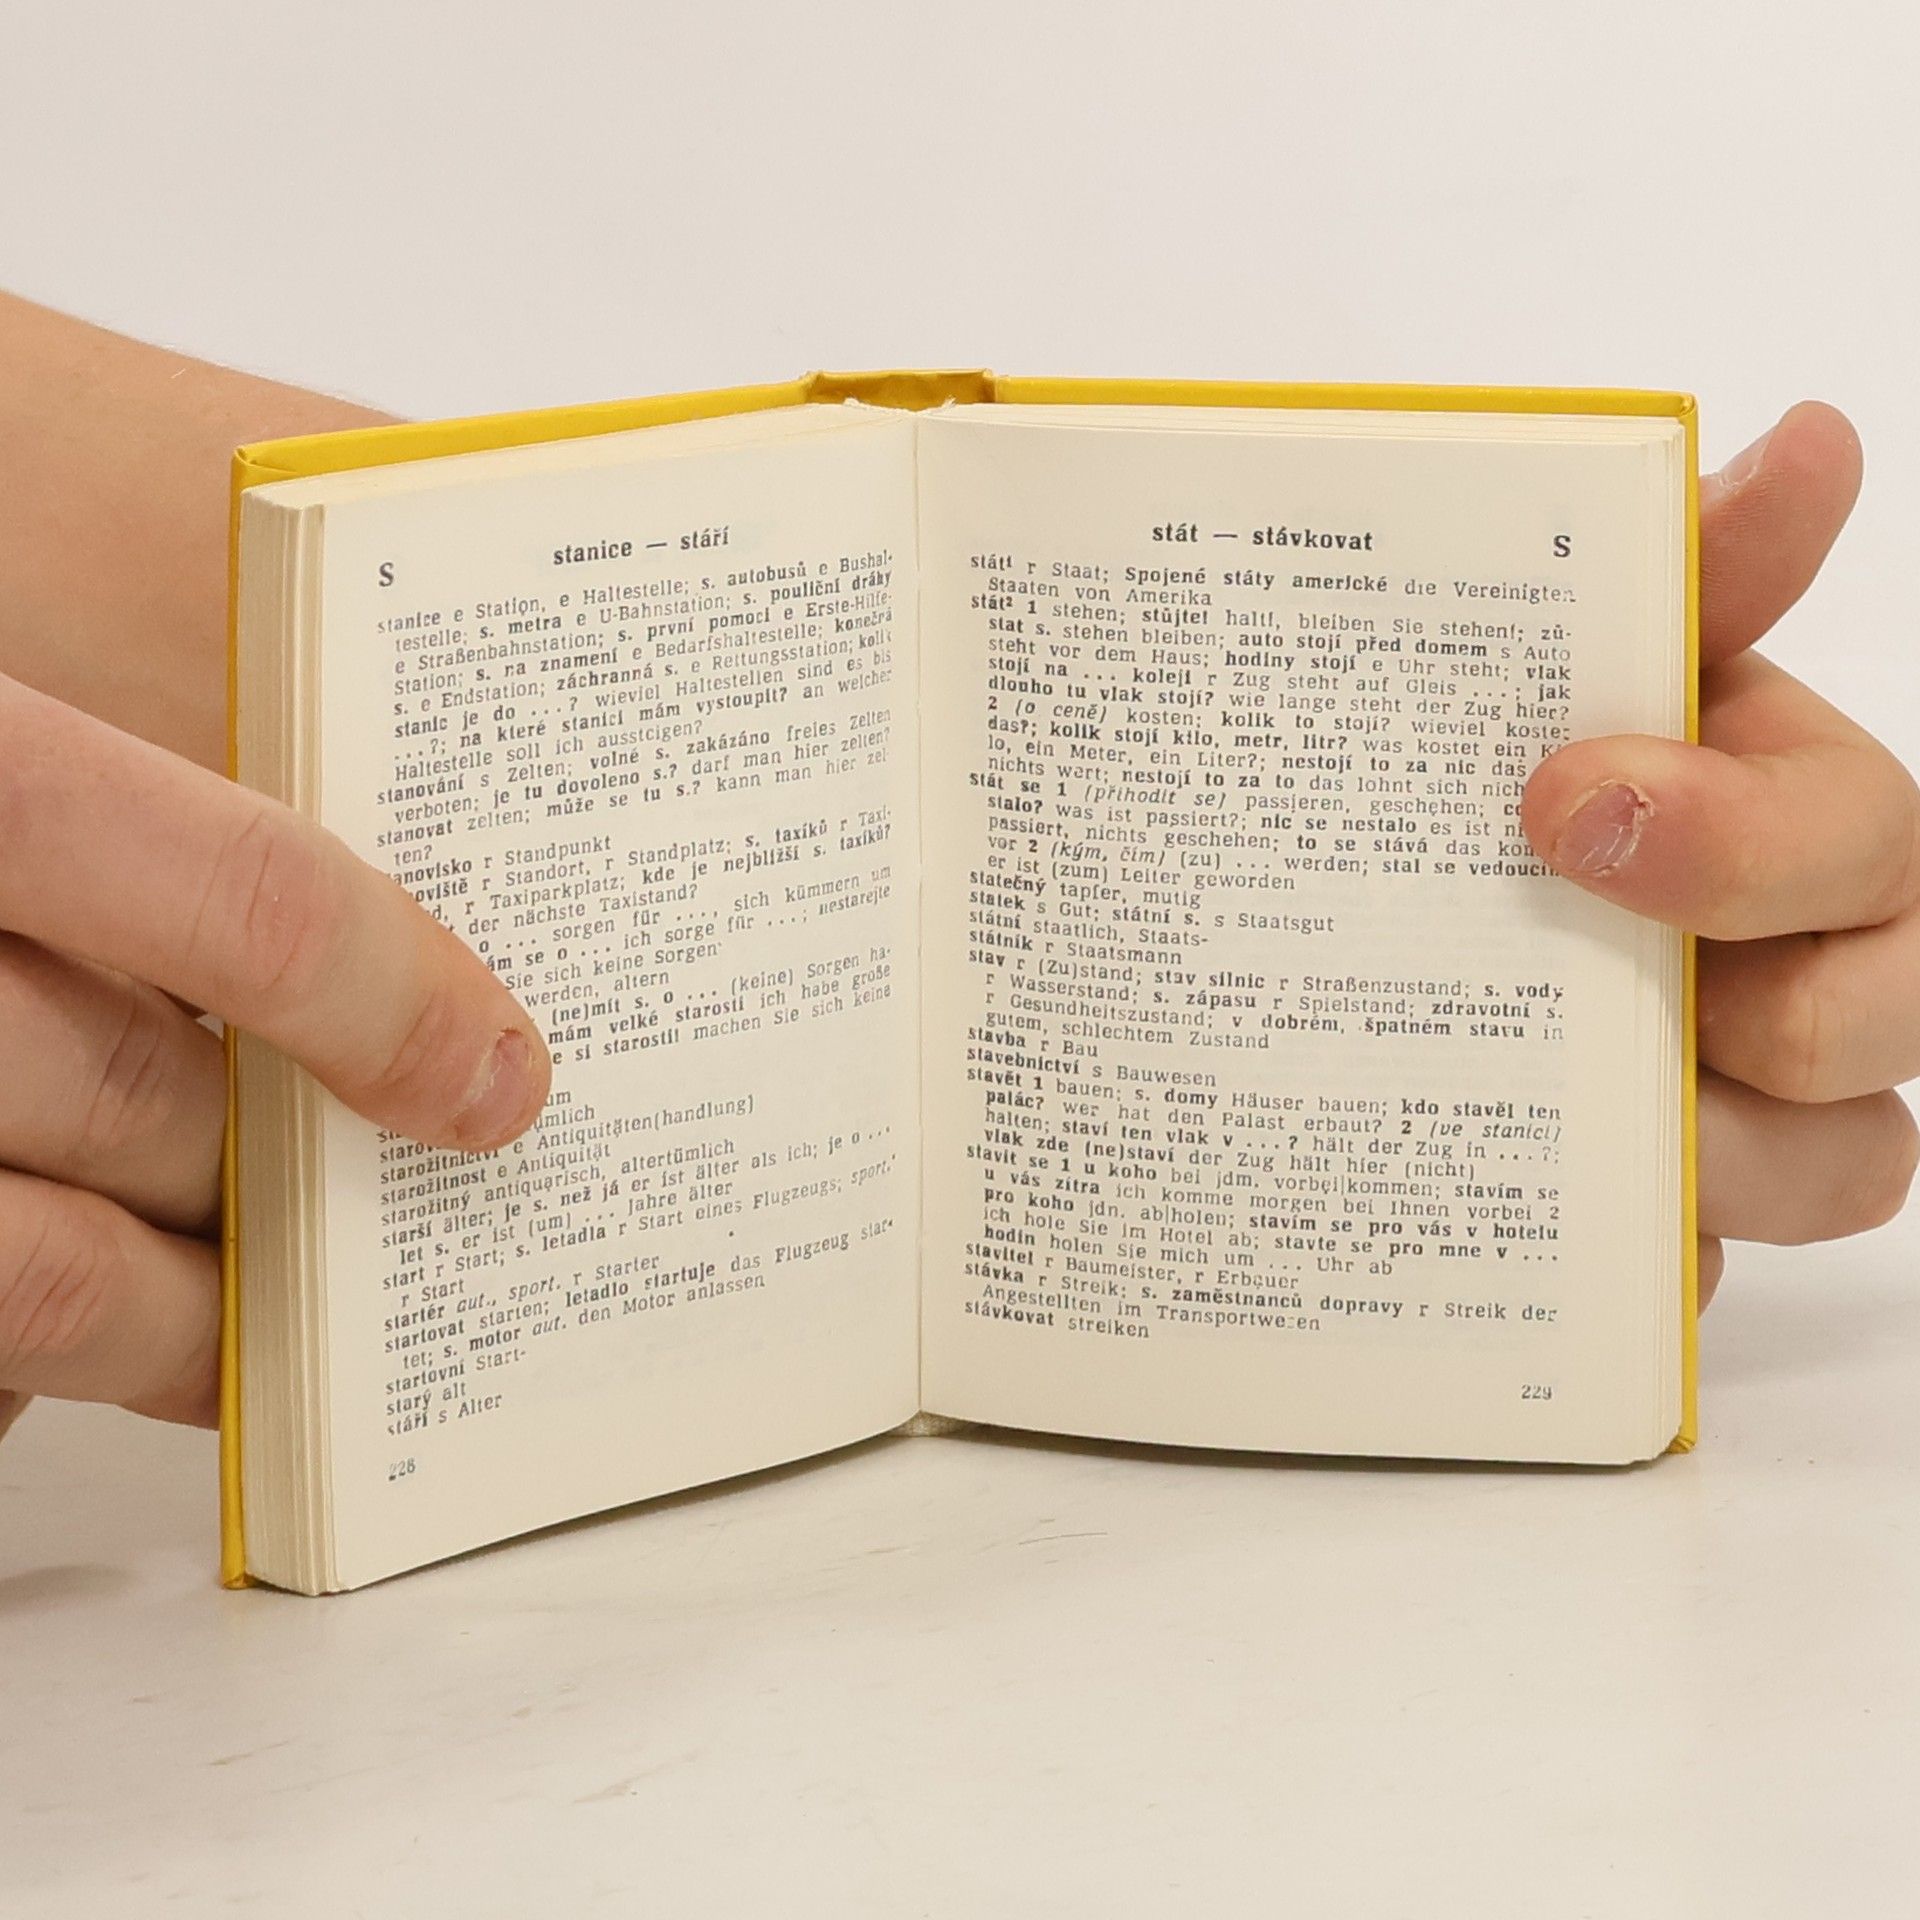 S
stanice — stáří
stanice e Station, e Haltestelle; s. autobusů e Bushal-
testelle; s. metra e U-Bahnstation; s. pouliční dráhy
e Straßenbahnstation; s. první pomoci e Erste-Hilfe-
Station; s. na znamení e Bedarfshaltestelle; konečná
s. e Endstation; záchranná s. e Rettungsstation; kolik
stanic je do ...? wieviel Haltestellen sind es bis
...?; na které stanici mám vystoupit? an welcher
Haltestelle soll ich aussteigen?
stanování s Zelten; volné s. zakázáno freies Zelten
verboten; je tu dovoleno s.? darf man hier zelten?
stanovat zelten; může se tu s.? kann man hier zel-
ten?
anovisko r Standpunkt
oviště r Standort, r Standplatz; s. taxíků r Taxi-
d, r Taxiparkplatz; kde je nejbližší s. taxíků?
t der nächste Taxistand?
o ... sorgen für ..., sich kümmern um
ám se o ... ich sorge für ...; nestarejte
Sie sich keine Sorgen
werden, altern
(ne)mít s. o ... (keine) Sorgen ha-
mám velké starosti ich habe große
e si starosti! machen Sie sich keine
um
ümlich
starožitnictví e Antiquitäten(handlung)
starožitnost e Antiquität
starožitný antiquarisch, altertümlich
starší älter; je s. než já er ist älter als ich; je o ...
let s. er ist (um) ... Jahre älter
start r Start; s. letadla r Start eines Flugzeugs; sport.
r Start
startér aut., sport. r Starter
startovat starten; letadlo startuje das Flugzeug star-
tet; s. motor aut. den Motor anlassen
startovní Start-
starý alt
stáří s Alter
228
stát — stávkovat
S
stát¹ r Staat; Spojené státy americké die Vereinigten
Staaten von Amerika
stát² 1 stehen; stůjte! halt!, bleiben Sie stehen!; zů-
stat s. stehen bleiben; auto stojí před domem s Auto
steht vor dem Haus; hodiny stojí e Uhr steht; vlak
stojí na ... koleji r Zug steht auf Gleis ...; jak
dlouho tu vlak stojí? wie lange steht der Zug hier?
2 (o ceně) kosten; kolik to stojí? wieviel kostet
das?; kolik stojí kilo, metr, litr? was kostet ein Ki-
lo, ein Meter, ein Liter?; nestojí to za nic das
nichts wert; nestojí to za to das lohnt sich nich
stát se 1 (přihodit se) passieren, geschehen; co
stalo? was ist passiert?; nic se nestalo es ist ni
passiert, nichts geschehen; to se stává das kom
vor 2 (kým, čím) (zu) ... werden; stal se vedoucím
er ist (zum) Leiter geworden
statečný tapfer, mutig
statek s Gut; státní s. s Staatsgut
státní staatlich, Staats-
státník r Staatsmann
stav r (Zu)stand; stav silnic r Straßenzustand; s. vody
r Wasserstand; s. zápasu r Spielstand; zdravotní s.
r Gesundheitszustand; v dobrém, špatném stavu in
gutem, schlechtem Zustand
stavba r Bau
stavebnictví s Bauwesen
stavět 1 bauen; s. domy Häuser bauen; kdo stavěl ten
palác? wer hat den Palast erbaut? 2 (ve stanici)
halten; staví ten vlak v ...? hält der Zug in ...?;
vlak zde (ne)staví der Zug hält hier (nicht)
stavit se 1 u koho bei jdm. vorbei|kommen; stavím se
u vás zítra ich komme morgen bei Ihnen vorbei 2
pro koho jdn. ab|holen; stavím se pro vás v hotelu
ich hole Sie im Hotel ab; stavte se pro mne v ...
hodin holen Sie mich um ... Uhr ab
stavitel r Baumeister, r Erbauer
stávka r Streik; s. zaměstnanců dopravy r Streik der
Angestellten im Transportwesen
stávkovat streiken
229